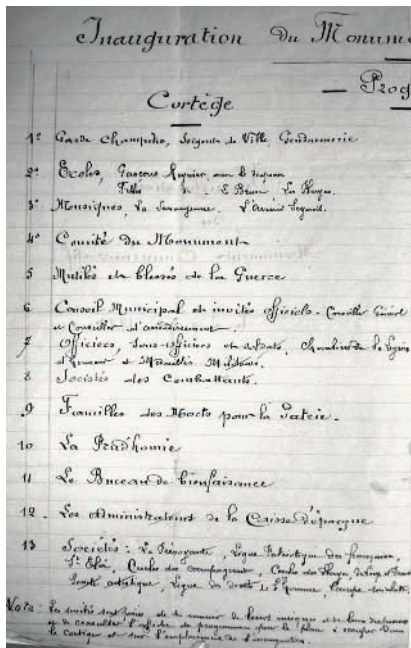 Inauguration du Monum
Prog
Cortège
1° Garde Champêtre, Sergents de Ville, Gendarmerie
2° Ecoles, Garçons Reynier, avec le drapeau
Filles
3° Musiques, La Seynoise, L'Avenir Seynois.
4° Comité du Monument
5 Mutilés et blessés de la Guerre
6 Conseil Municipal et invités officiels. Conseiller Général
et Conseiller d'arrondissement.
7 Officiers, Sous-officiers et soldats, Chevaliers de la Légion
d'Honneur et Médaillés Militaires.
8 Sociétés des Combattants.
9 Familles des Morts pour la Patrie.
10 La Prudhomie
11 Le Bureau de bienfaisance
12 Les Administrateurs de la Caisse d'épargne
13 Sociétés : La Prévoyante, Ligue Patriotique des françaises,
St Eloi, Cercles des
artistique, Ligue des droits de l'Homme,
Nota : Les sociétés sont priées de se munir de leurs insignes et de leurs drapeaux
et de consulter l'affiche du programme pour la place à occuper dans
le cortège et sur l'emplacement de l'inauguration.